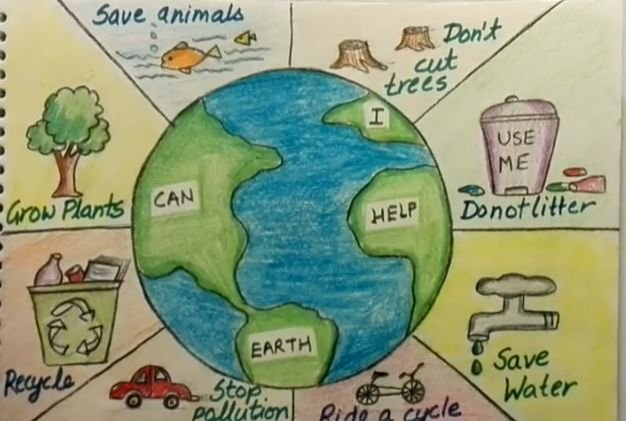 Save animals
Don't
cut
trees
I
USE
ME
CAN
HELP
Grow Plants
Donot litter
EARTH
Save
Water
Recycle
Stop
pollution
Ride a cycle